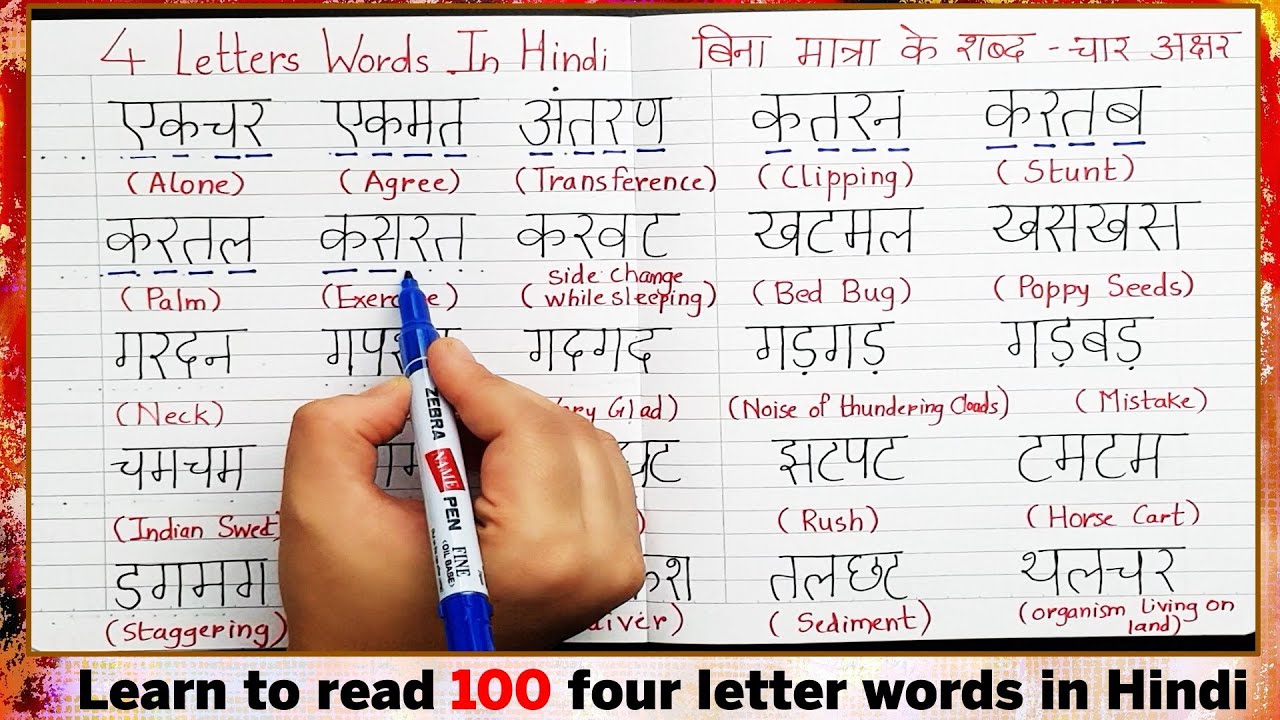 4 Letters Words In Hindi बिना मात्रा के शब्द - चार अक्षर
एकचर एकमत अंतरण कतरन करतब
(Alone) (Agree) (Transference) (Clipping) (Stunt)
करतल कसरत करवट खटमल खसखस
side change
(Palm) while sleeping) (Bed Bug) (Poppy Seeds)
गरदन गदगद गड़गड़ गड़बड़
(Neck) Glad) (Noise of thundering Clouds) (Mistake)
चमचम झटपट टमटम
(Indian Sweet) (Rush) (Horse Cart)
डगमग तलछट थलचर
(Staggering) (Sediment) (organism Living on
land)
ZEBRA
NAME
PEN
FINE
(OIL BASE)
Learn to read 100 four letter words in Hindi